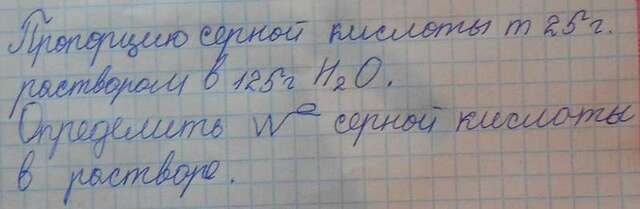 Пропорцию серной кислоты m 25г.
раствором в 125г H₂O.
Определить W серной кислоты
в растворе.